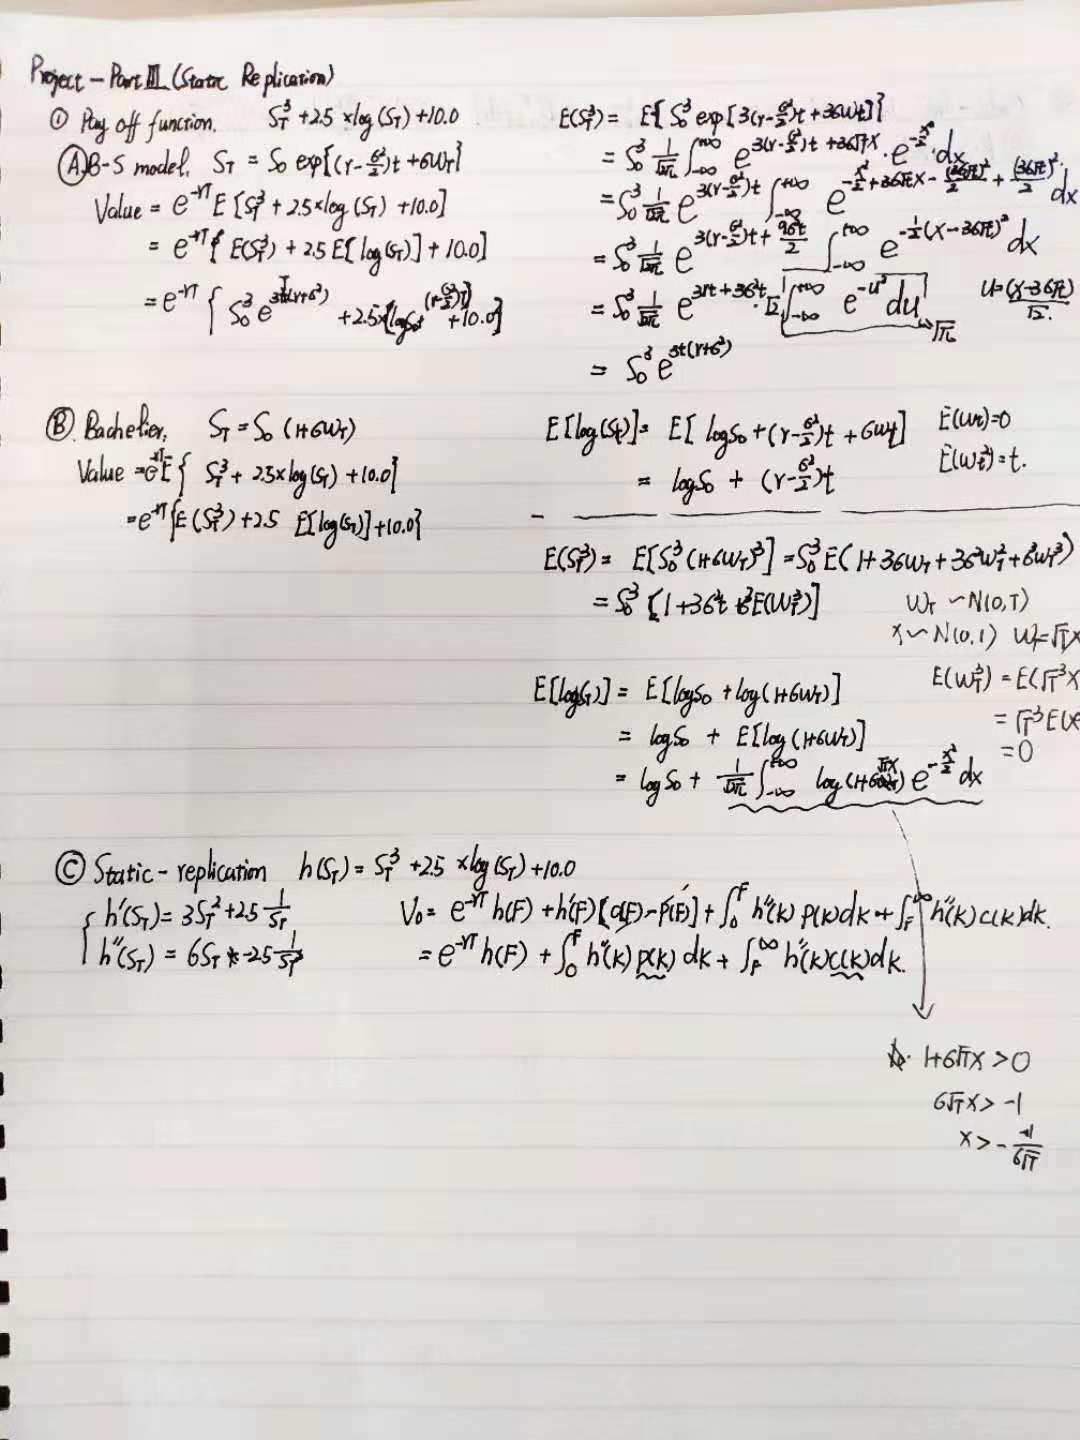 Project - Part III (Static Replication)
① Pay off function. S_T^3 + 2.5 × log(S_T) + 10.0
Ⓐ B-S model. S_T = S_0 exp[(r-σ²/2)t + σW_T]
Value = e^{-rT} E[S_T^3 + 2.5×log(S_T) + 10.0]
= e^{-rT}{ E(S_T^3) + 2.5 E[log(S_T)] + 10.0]
= e^{-rT} { S_0^3 e^{3T(r+σ²)} + 2.5×[logS_0 + (r-σ²/2)T] + 10.0}
E(S_T^3) = E{ S_0^3 exp[3(r-σ²/2)t + 3σW_t]}
= S_0^3 1/√2π ∫_{-∞}^{+∞} e^{3(r-σ²/2)t + 3σ√t x} · e^{-x²/2} · dx
= S_0^3 1/√2π e^{3(r-σ²/2)t} ∫_{-∞}^{+∞} e^{-x²/2 + 3σ√t x - (3σ√t)²/2 + (3σ√t)²/2} dx
= S_0^3 1/√2π e^{3(r-σ²/2)t + 9σ²t/2} ∫_{-∞}^{+∞} e^{-1/2(x-3σ√t)²} dx
= S_0^3 1/√2π e^{3rt+3σ²t} · √2 ∫_{-∞}^{+∞} e^{-u²} du → √π u=(x-3σ√t)/√2.
= S_0^3 e^{3t(r+σ²)}
Ⓑ. Bachelier. S_T = S_0 (1+σW_T)
Value = e^{-rT}E{ S_T^3 + 2.5×log(S_T) + 10.0}
= e^{-rT}{E(S_T^3) + 2.5 E[log(S_T)] + 10.0}
E[log(S_t)] = E[ logS_0 + (r-σ²/2)t + σW_t] E(W_t)=0
= logS_0 + (r-σ²/2)t E(W_t²)=t.
E(S_T^3) = E[S_0^3 (1+σW_T)^3] = S_0^3 E(1+3σW_T+3σ²W_T²+σ³W_T³)
= S_0^3 [1+3σ²t+σ³E(W_T³)] W_T ~ N(0,T)
x ~ N(0,1) W_T=√T x
E[log(S_T)] = E[logS_0 + log(1+σW_T)] E(W_T³) = E(√T³X
= logS_0 + E[log(1+σW_T)] = √T³E(x
= 0
= logS_0 + 1/√2π ∫_{-∞}^{+∞} log(1+σ√T x) e^{-x²/2} dx
Ⓒ Static-replication h(S_T) = S_T^3 + 2.5 × log(S_T) + 10.0
{ h'(S_T) = 3S_T² + 2.5 1/S_T V_0 = e^{-rT} h(F) + h'(F)[c(F)-P(F)] + ∫_0^F h''(k) p(k) dk + ∫_F^∞ h''(k) c(k) dk.
h''(S_T) = 6S_T - 2.5 1/S_T² = e^{-rT} h(F) + ∫_0^F h''(k) p(k) dk + ∫_F^∞ h''(k) c(k) dk.
☆. 1+σ√T x > 0
σ√T x > -1
x > - 1/σ√T